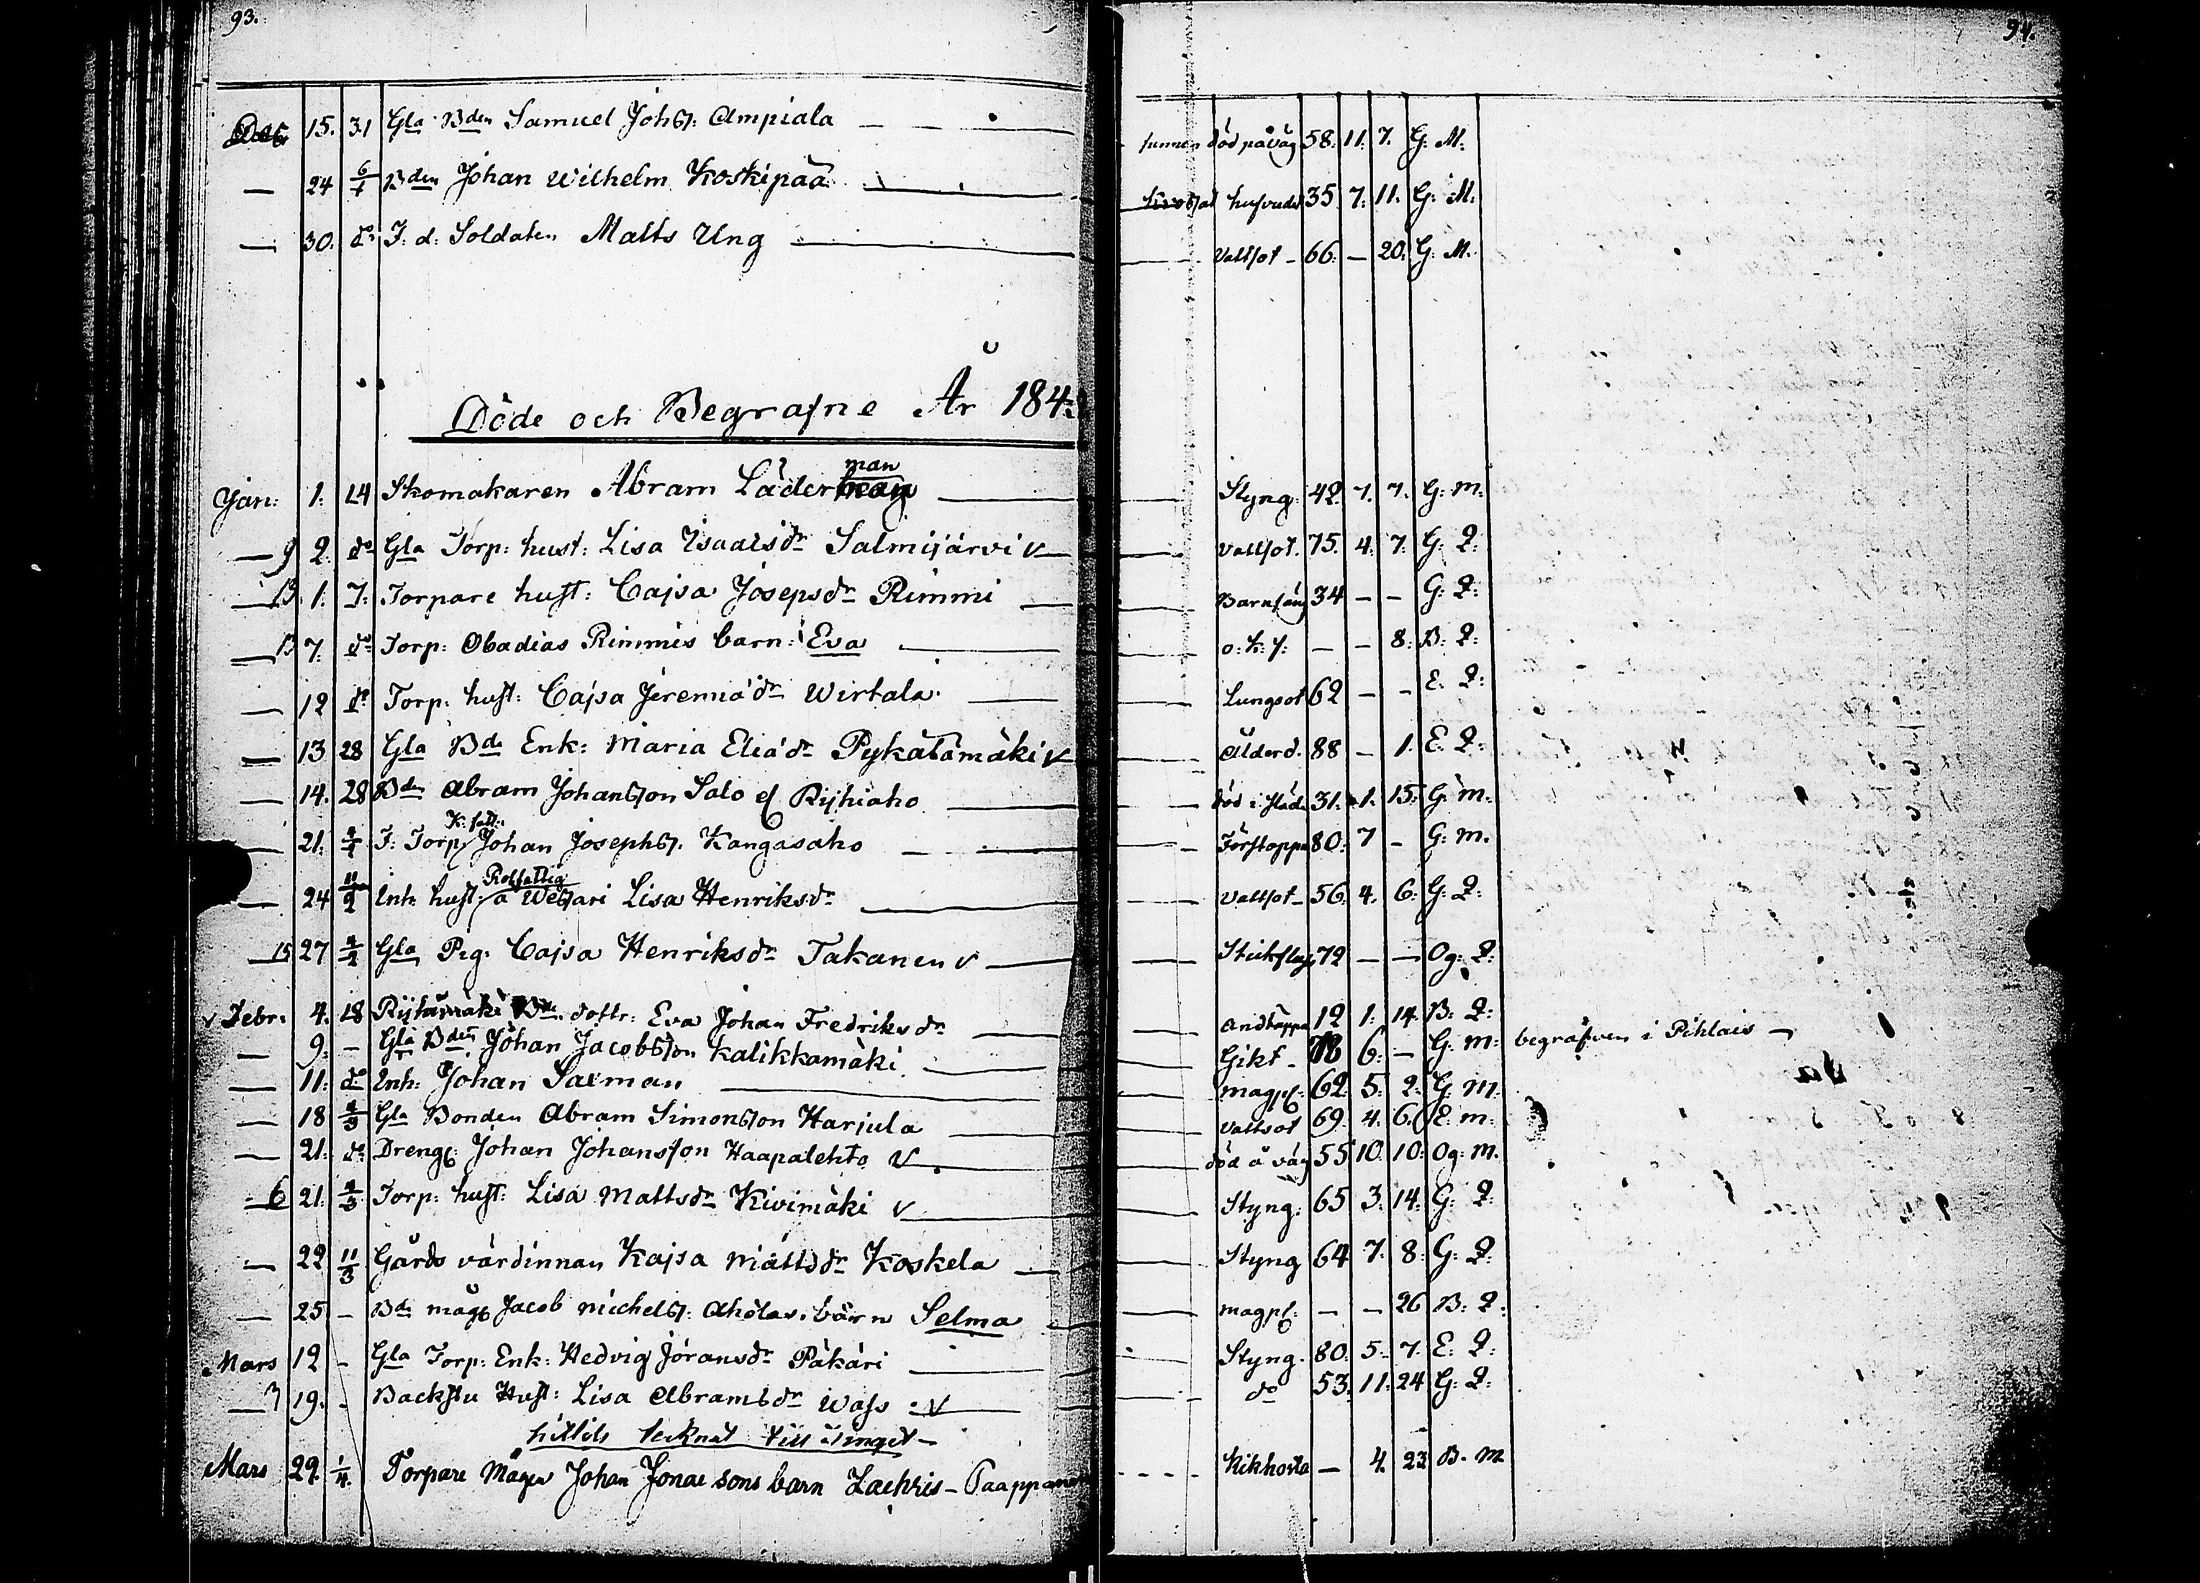 93.
94.
15. 31 Gla Bden Samuel Johss: Ampiala — funnen död på väg 58. 11. 7. G: M:
— 24 6/1 Bden Johan Wilhelm Koskipää — hufvud 35. 7. 11. G: M:
— 30. do F: d: Soldaten Matts Ung — Vattsot — 66. — 20. G: M.
Döde och Begrafne År 184
Jan: 1. 14 Skomakaren Abram Läderman — Styng: 42. 7. 7. G: M:
— 2. do Gla Torp: hust: Lisa Isaacsdr Salmijärvi v — Vattsot. 75. 4. 7. G: Q:
— 1. 7. Torpare hust: Cajsa Josepsdr Rimmi — Barnsäng 34 — — G: Q:
— 7. do Torp: Obadias Rimmis barn: Eva — o: k: s: — — 8. B: Q:
— 12 do Torp: hust: Cajsa Jeremiädr Wirtala — Lungsot 62 — — E. Q:
— 13 28 Gla Bde Enk: Maria Eliædr Pykälämäki v — Ålderd. 88 — 1. E. Q:
— 14. 28 Bden Abram Johansson Salo el Rijhiaho — död i 31. 1. 15. G: m:
— 21. F: Torp: Johan Josephss. Kangasaho — Förstoppn 80. 7 — G: m.
— 24 11/2 Inh: hust: Rotfattig a Lisa Henriksdr — Vattsot — 56. 4. 6. G: Q:
— 27 Gla Pig. Cajsa Henriksdr Takanen v — Stickflug 72 — — Og: Q:
v Febr: 4. 18 Bde dottr: Eva Johan Fredriksdr — Andtäppa 12 1. 14. B: Q:
— 9. — Gla Bden Johan Jacobsson Kalikkamäki — Gikt — 6: — G: m: begrafven i Pihlais —
— 11. do Inh: Johan Salman — magpl: 62. 5. 2. G: M.
— 18 Gla Bonden Abram Simonsson Harjula — Vattsot 69. 4. 6. E: m:
— 21. do Dreng: Johan Johansson Haapalehto v — död å väg 55 10. 10. Og: M.
— 21. Torp: hust: Lisa Mattsdr Kivimäki v — Styng. 65 3. 14. G: Q:
— 22 11/3 Gårds värdinnan Kajsa Mattsdr Koskela — Styng 64 7. 8. G: Q:
— 25 — Bde måg Jacob Michelss. Aholas barn Selma — magpl: — — 26 B: Q:
Mars 12 — Gla Torp: Enk: Hedvig Jöransdr Päkäri — Styng. 80. 5. 7. E: Q:
— 19. — Backstu Hust: Lisa Abramsdr Wass v — do 53. 11. 24 G: Q:
hittils till tinget —
Mars 29. 1/4. Torpare Mågen Johan Jonae sons barn Zachris — Paappanen — Kikhosta — 4. 23 B. M